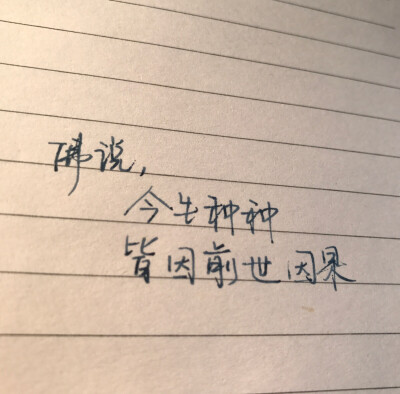 佛说，
今生种种
皆因前世因果